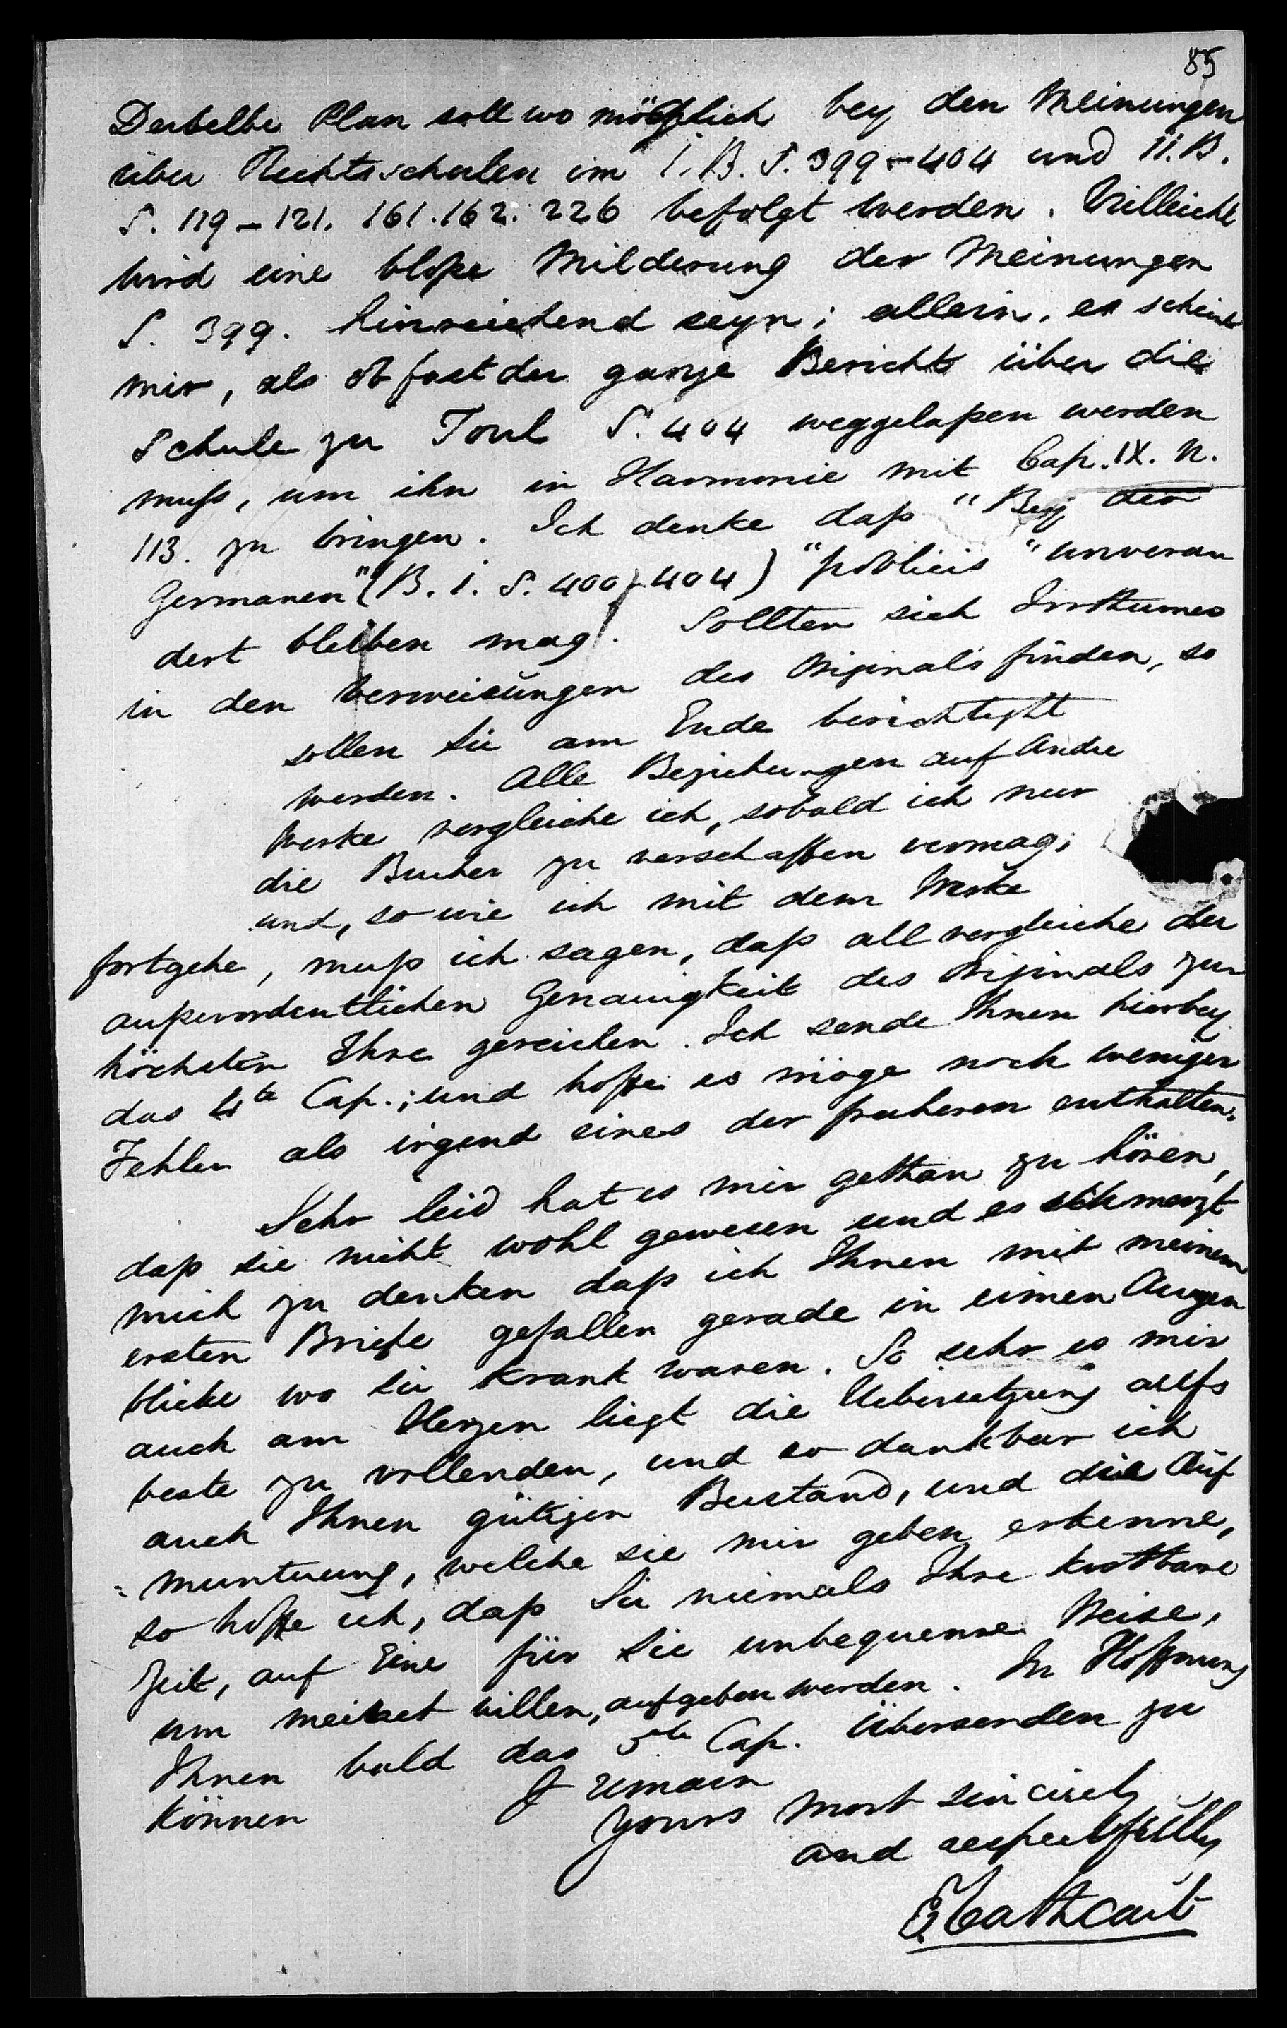 85
Derselbe Plan soll wo möglich bey den Meinungen
über Rechtsschulen im I. B. S. 399-404 und II. B.
S. 119-121. 161. 162. 226 befolgt werden. Vielleicht
wird eine bloße Milderung der Meinungen
S. 399. hinreichend seyn; allein, es scheint
mir, als ob fast der ganze Bericht über die
Schule zu Toul S. 404 weggelaßen werden
muß, um ihn in Harmonie mit Cap. IX. N.
113. zu bringen. Ich denke daß "Bey der
Germanen" (B. I. S. 400-404) "publicis" unveran
dert bleiben mag. Sollten sich Irrthumer
in den Verweisungen des Originals finden, so
sollen sie am Ende berichtigt
werden. Alle Beziehungen auf Andre
Werke vergleiche ich, sobald ich nur
die Bucher zu verschaffen vermag;
und, so wie ich mit dem Werke
fortgehe, muß ich sagen, daß all vergleiche der
außerordentlichen Genauigkeit des Originals zur
höchsten Ehre gereichen. Ich sende Ihnen hierbey
das 4te Cap.; und hoffe es möge noch weniger
Fehler als irgend eines der fruheren enthalten.
Sehr leid hat es mir gethan zu hören,
daß sie nicht wohl gewesen und es schmerzt
mich zu denken daß ich Ihnen mit meinem
ersten Briefe gefallen gerade in einen Augen
blicke wo sie krank waren. So sehr es mir
auch am Herzen liegt die Uebersetzung aufs
beste zu vollenden, und so dankbar ich
auch Ihnen gütigen Beistand, und die Auf
=munterung, welche sie mir geben erkenne,
so hoffe ich, daß Sie niemals Ihre kostbare
Zeit, auf Eine für Sie unbequeme Weise,
um meinet willen, aufgeben werden. In Hoffnung
Ihnen bald das 5te Cap. übersenden zu
können I remain
Yours most sincerely
and respectfully
E. Cathcart